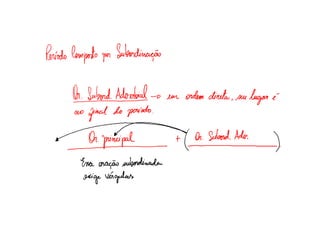 Período Composto por Subordinação
Or. Subord Adverbial → em ordem direta, seu lugar é
ao final do período.
Or principal + (Or. Subord Adv.)
Essa oração subordinada
exige vírgulas